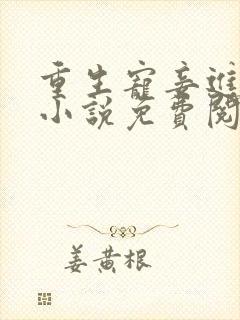 重生寵妾進
小說免費閱
姜黃根